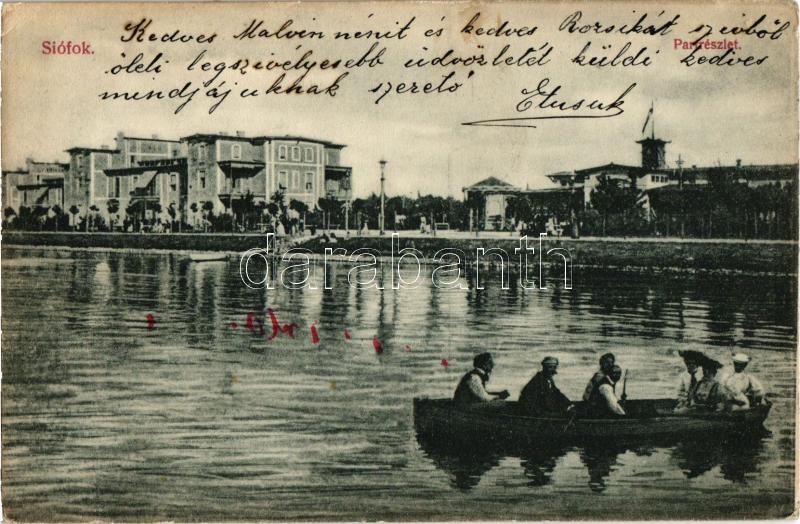 Siófok.
Partrészlet.
Kedves Malvin nénit és kedves Rozsikát szivből
öleli legszivélyesebb üdvözletét küldi kedves
mendjájuknak szerető
Etusuk
darabanth